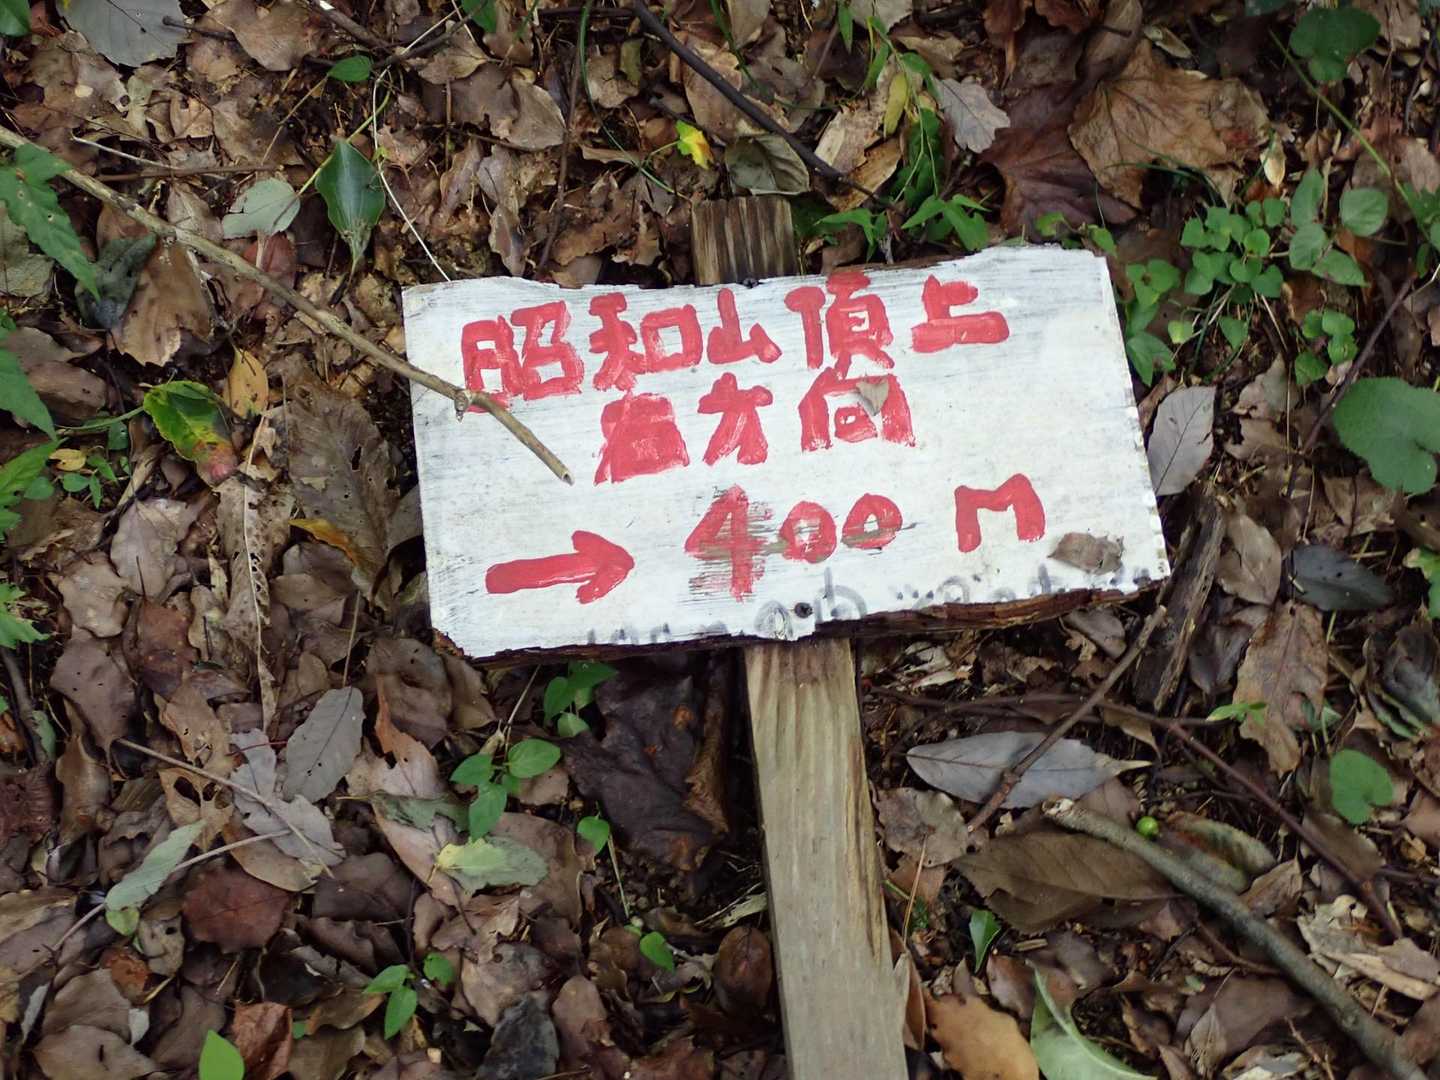 昭和山頂上
右方向
→ 400M